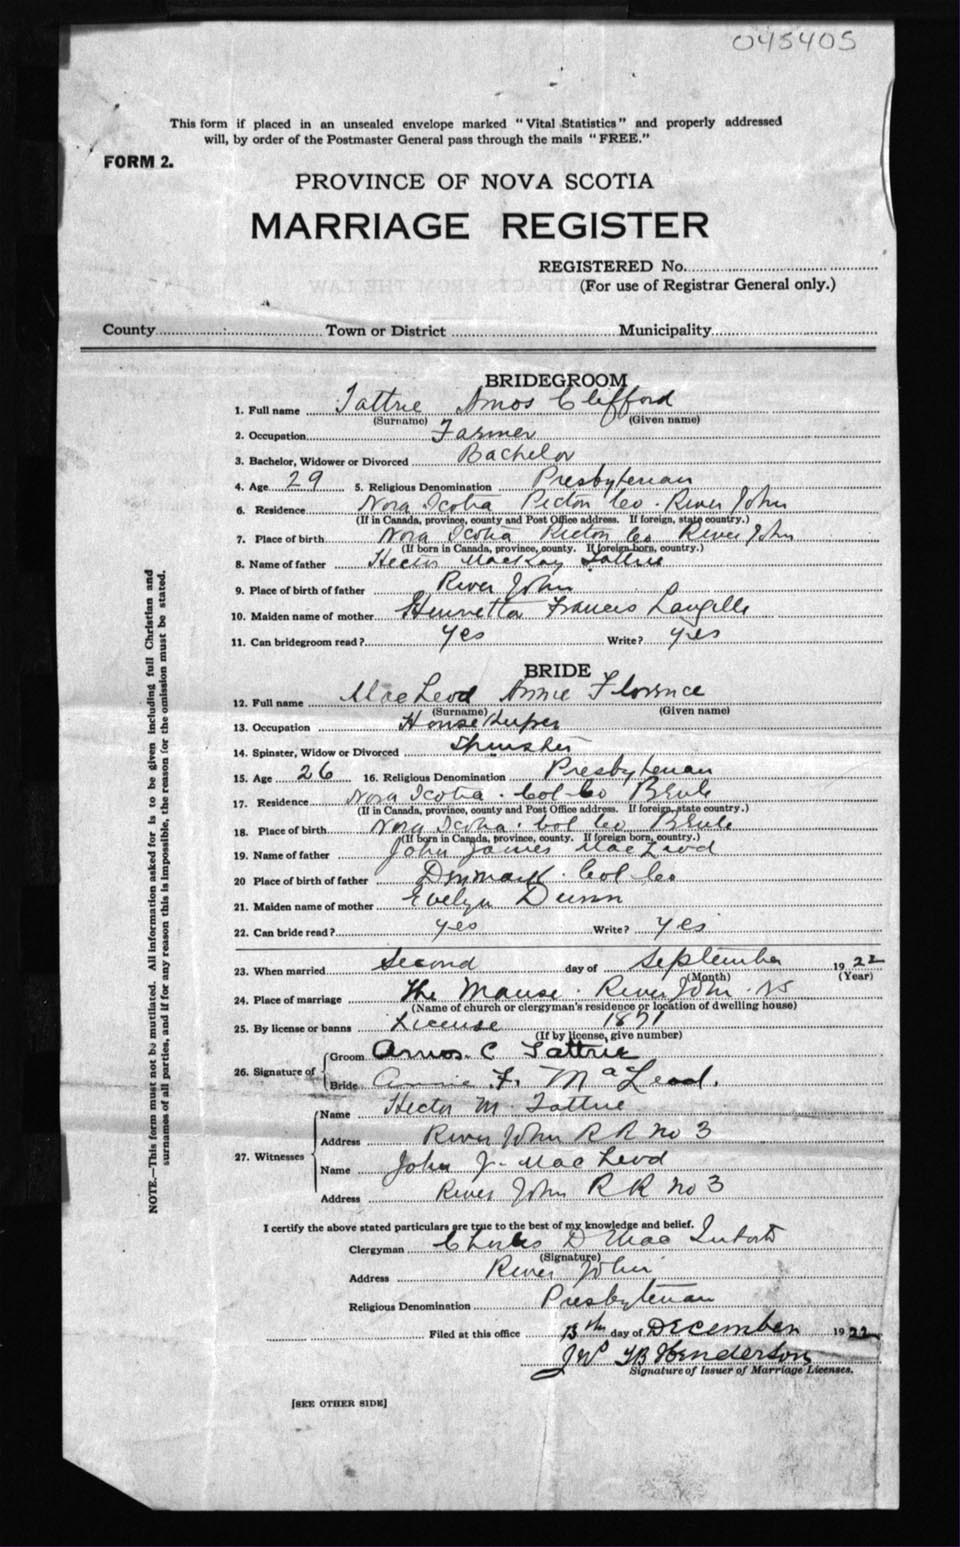 045405
This form if placed in an unsealed envelope marked "Vital Statistics" and properly addressed
will, by order of the Postmaster General pass through the mails "FREE."
FORM 2.
PROVINCE OF NOVA SCOTIA
MARRIAGE REGISTER
REGISTERED No.
(For use of Registrar General only.)
County Town or District Municipality
BRIDEGROOM
1. Full name Tattrie Amos Clifford
(Surname) (Given name)
2. Occupation Farmer
3. Bachelor, Widower or Divorced Bachelor
4. Age 29 5. Religious Denomination Presbyterian
6. Residence Nova Scotia Pictou Co. River John
(If in Canada, province, county and Post Office address. If foreign, state country.)
7. Place of birth Nova Scotia Pictou Co River John
(If born in Canada, province, county. If foreign born, country.)
8. Name of father Hector MacKay Tattrie
9. Place of birth of father River John
10. Maiden name of mother Henrietta Frances Langille
11. Can bridegroom read? yes Write? yes
BRIDE
12. Full name MacLeod Annie Florence
(Surname) (Given name)
13. Occupation House Keeper
14. Spinster, Widow or Divorced Spinster
15. Age 26 16. Religious Denomination Presbyterian
17. Residence Nova Scotia. Col Co Brule
(If in Canada, province, county and Post Office address. If foreign, state country.)
18. Place of birth Nova Scotia. Col Co Brule
(If born in Canada, province, county. If foreign born, country.)
19. Name of father John James MacLeod
20 Place of birth of father Denmark. Col Co
21. Maiden name of mother Evelyn Dunn
22. Can bride read? yes Write? yes
23. When married Second day of September 1922
(Month) (Year)
24. Place of marriage The Manse. River John. NS
(Name of church or clergyman's residence or location of dwelling house)
25. By license or banns License 1871
(If by license, give number)
26. Signature of Groom Amos. C Tattrie
Bride Annie F. MacLeod.
27. Witnesses Name Hector M. Tattrie
Address River John R R no 3
Name John J. MacLeod
Address River John R R no 3
I certify the above stated particulars are true to the best of my knowledge and belief.
Clergyman Charles D Mac Intosh
(Signature)
Address River John
Religious Denomination Presbyterian
Filed at this office 13th day of December 1922
Henderson
Signature of Issuer of Marriage Licenses.
[SEE OTHER SIDE]
NOTE.—This form must not be mutilated. All information asked for is to be given including full Christian and
surnames of all parties, and if for any reason this is impossible, the reason for the omission must be stated.